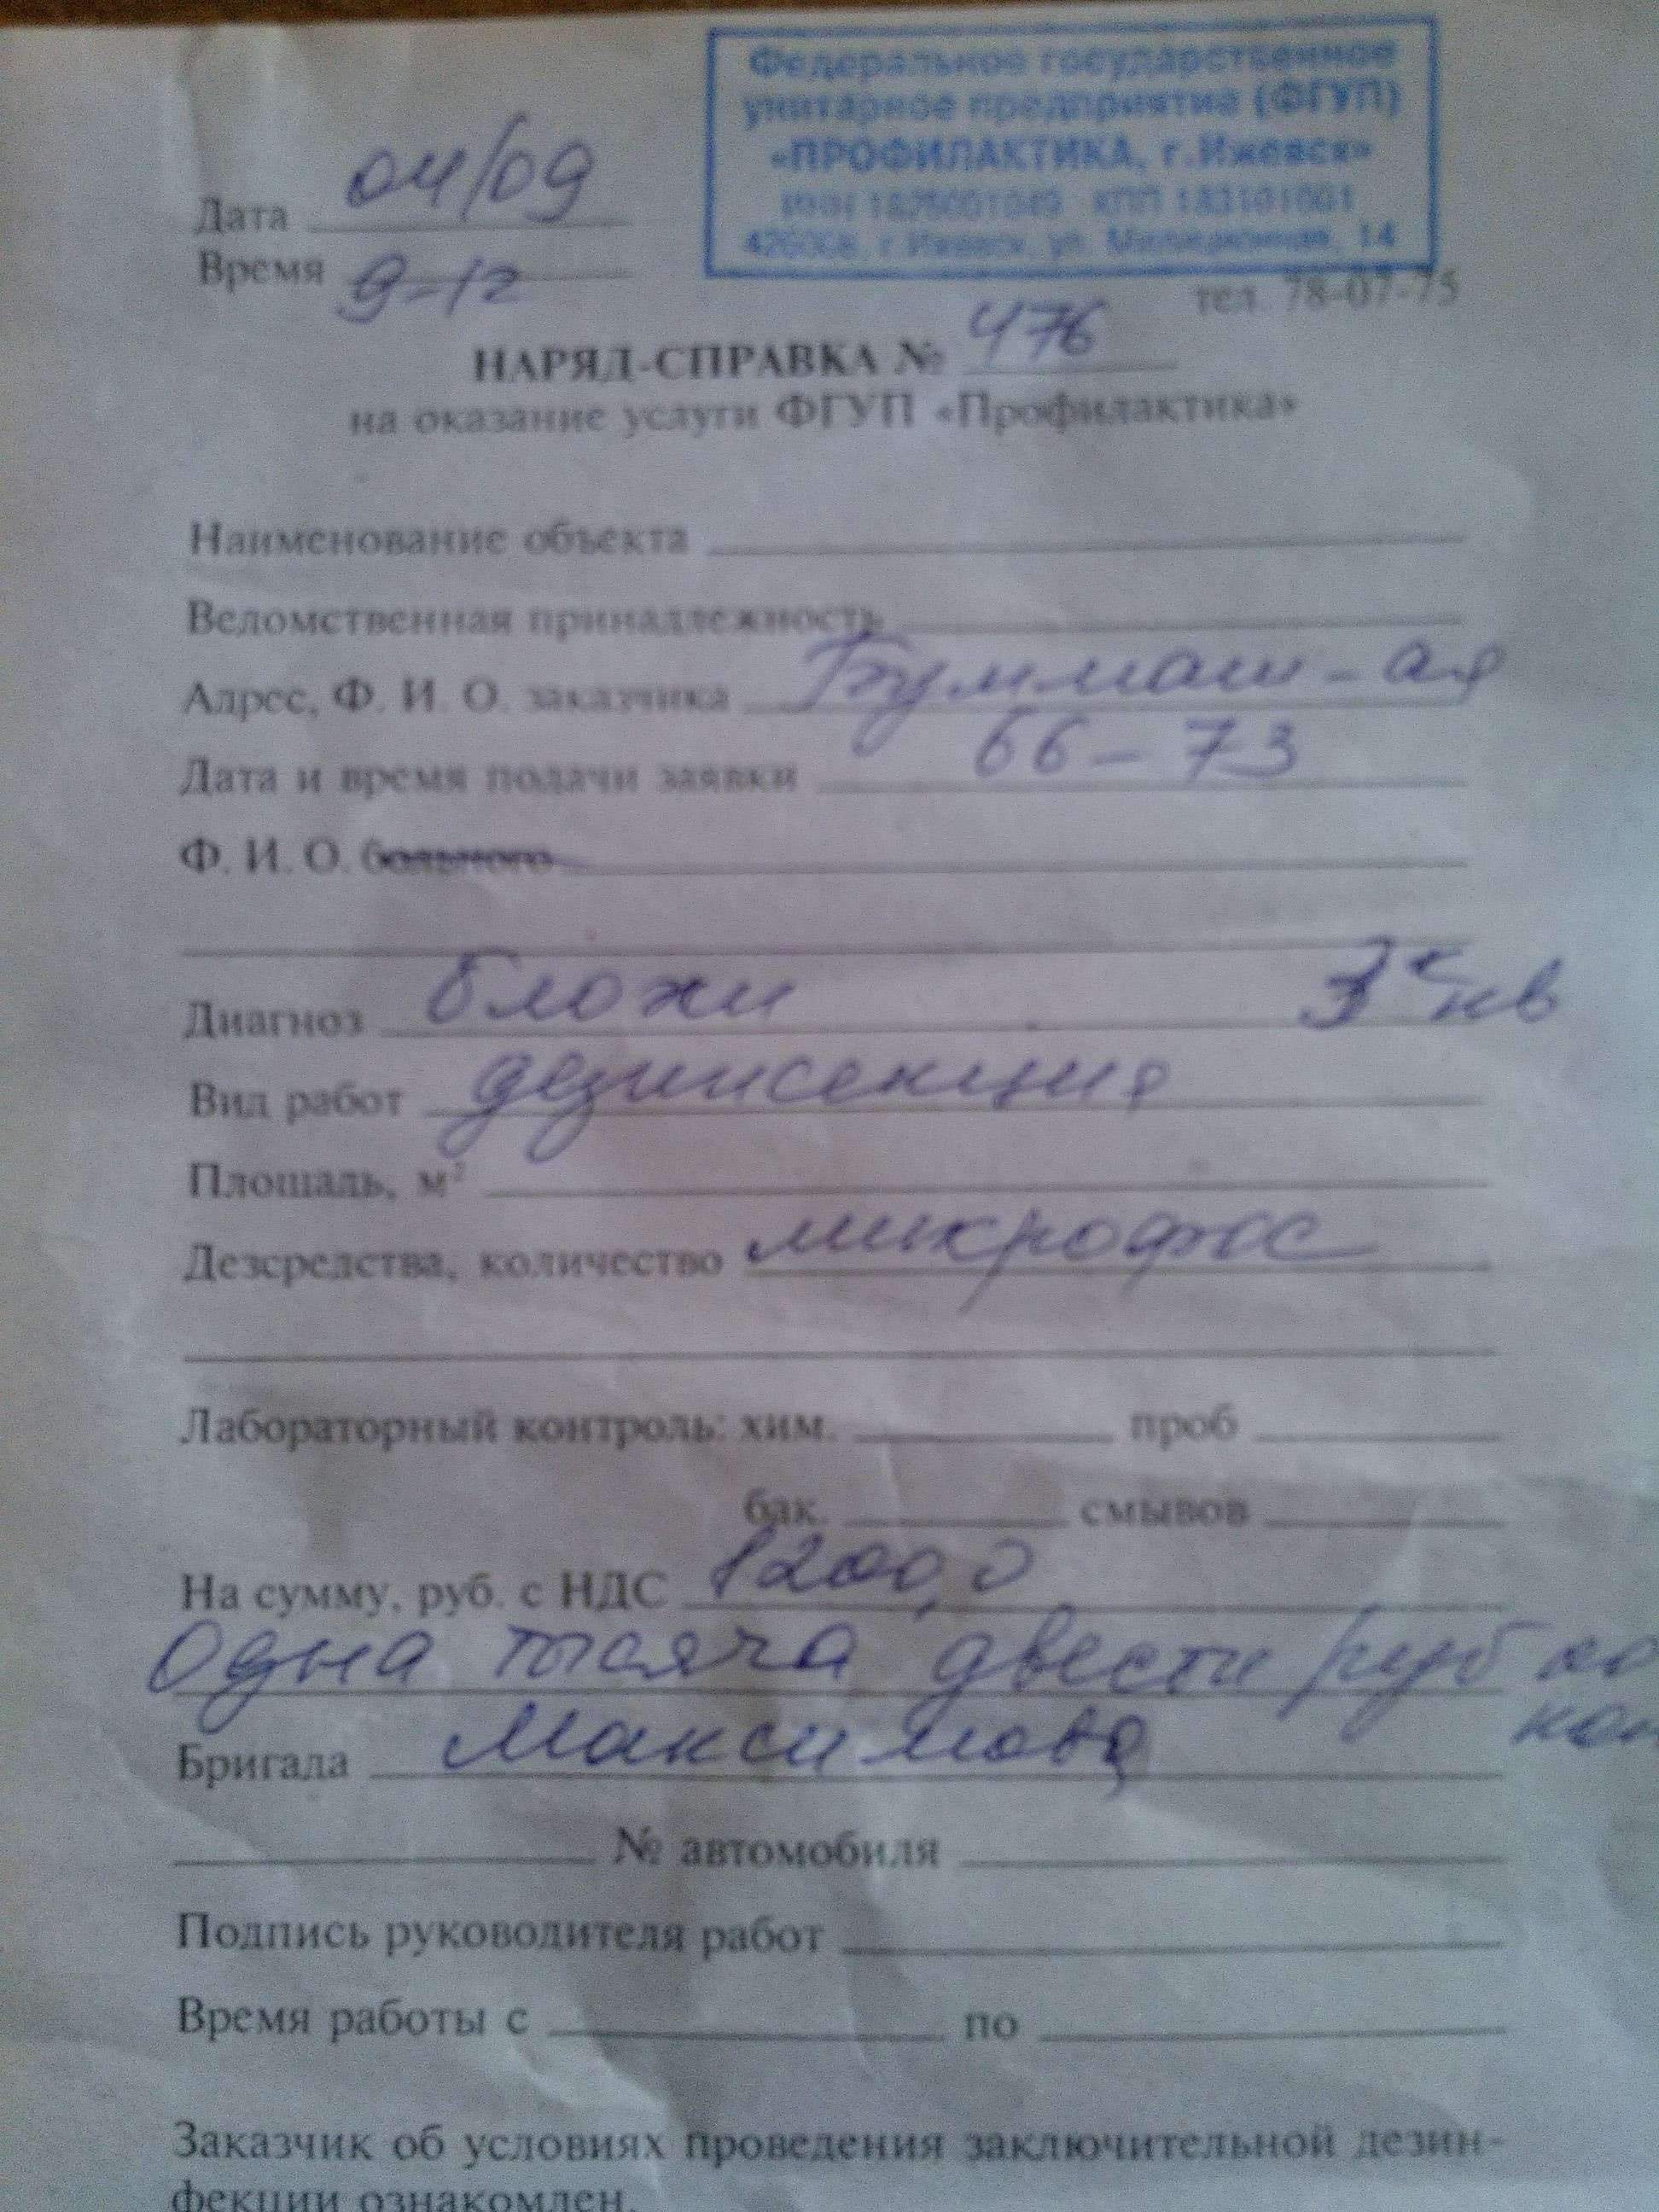 Федеральное государственное
унитарное предприятие (ФГУП)
«ПРОФИЛАКТИКА, г.Ижевск»
КПП 183101001
г.Ижевск, ул. Милиционная, 14
Дата 04/09
Время 9-12
тел. 78-07-75
НАРЯД-СПРАВКА № 476
на оказание услуги ФГУП «Профилактика»
Наименование объекта
Ведомственная принадлежность
Адрес, Ф. И. О. заказчика Буммаш-ая
66-73
Дата и время подачи заявки
Ф. И. О. больного
Диагноз блохи 3х кв
Вид работ дезинсекция
Площадь, м²
Дезсредства, количество микрофос
Лабораторный контроль: хим. проб
бак. смывов
На сумму, руб. с НДС 1200,0
Одна тысяча двести руб 00
коп
Бригада Максимова
№ автомобиля
Подпись руководителя работ
Время работы с по
Заказчик об условиях проведения заключительной дезин-
фекции ознакомлен.